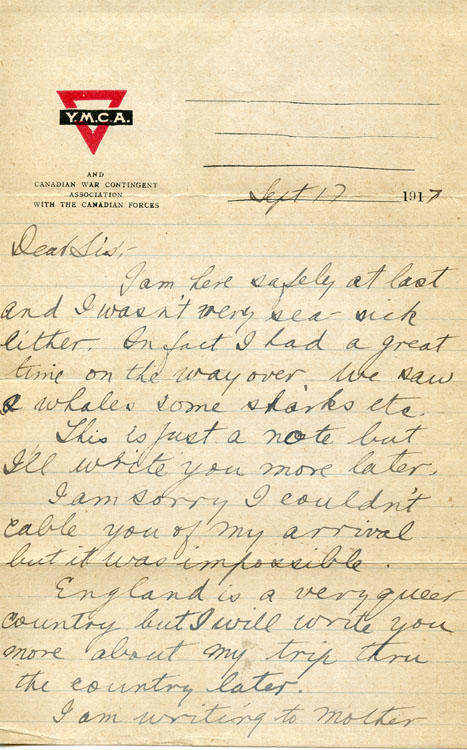 Y.M.C.A.
AND
CANADIAN WAR CONTINGENT
ASSOCIATION
WITH THE CANADIAN FORCES
Sept 17 1917
Dear Sis,-
I am here safely at last
and I wasn't very sea-sick
either. In fact I had a great
time on the way over. We saw
whales some sharks etc.
This is just a note but
I'll write you more later.
I am sorry I couldn't
cable you of my arrival
but it was impossible.
England is a very queer
country but I will write you
more about my trip thru
the country later.
I am writing to Mother